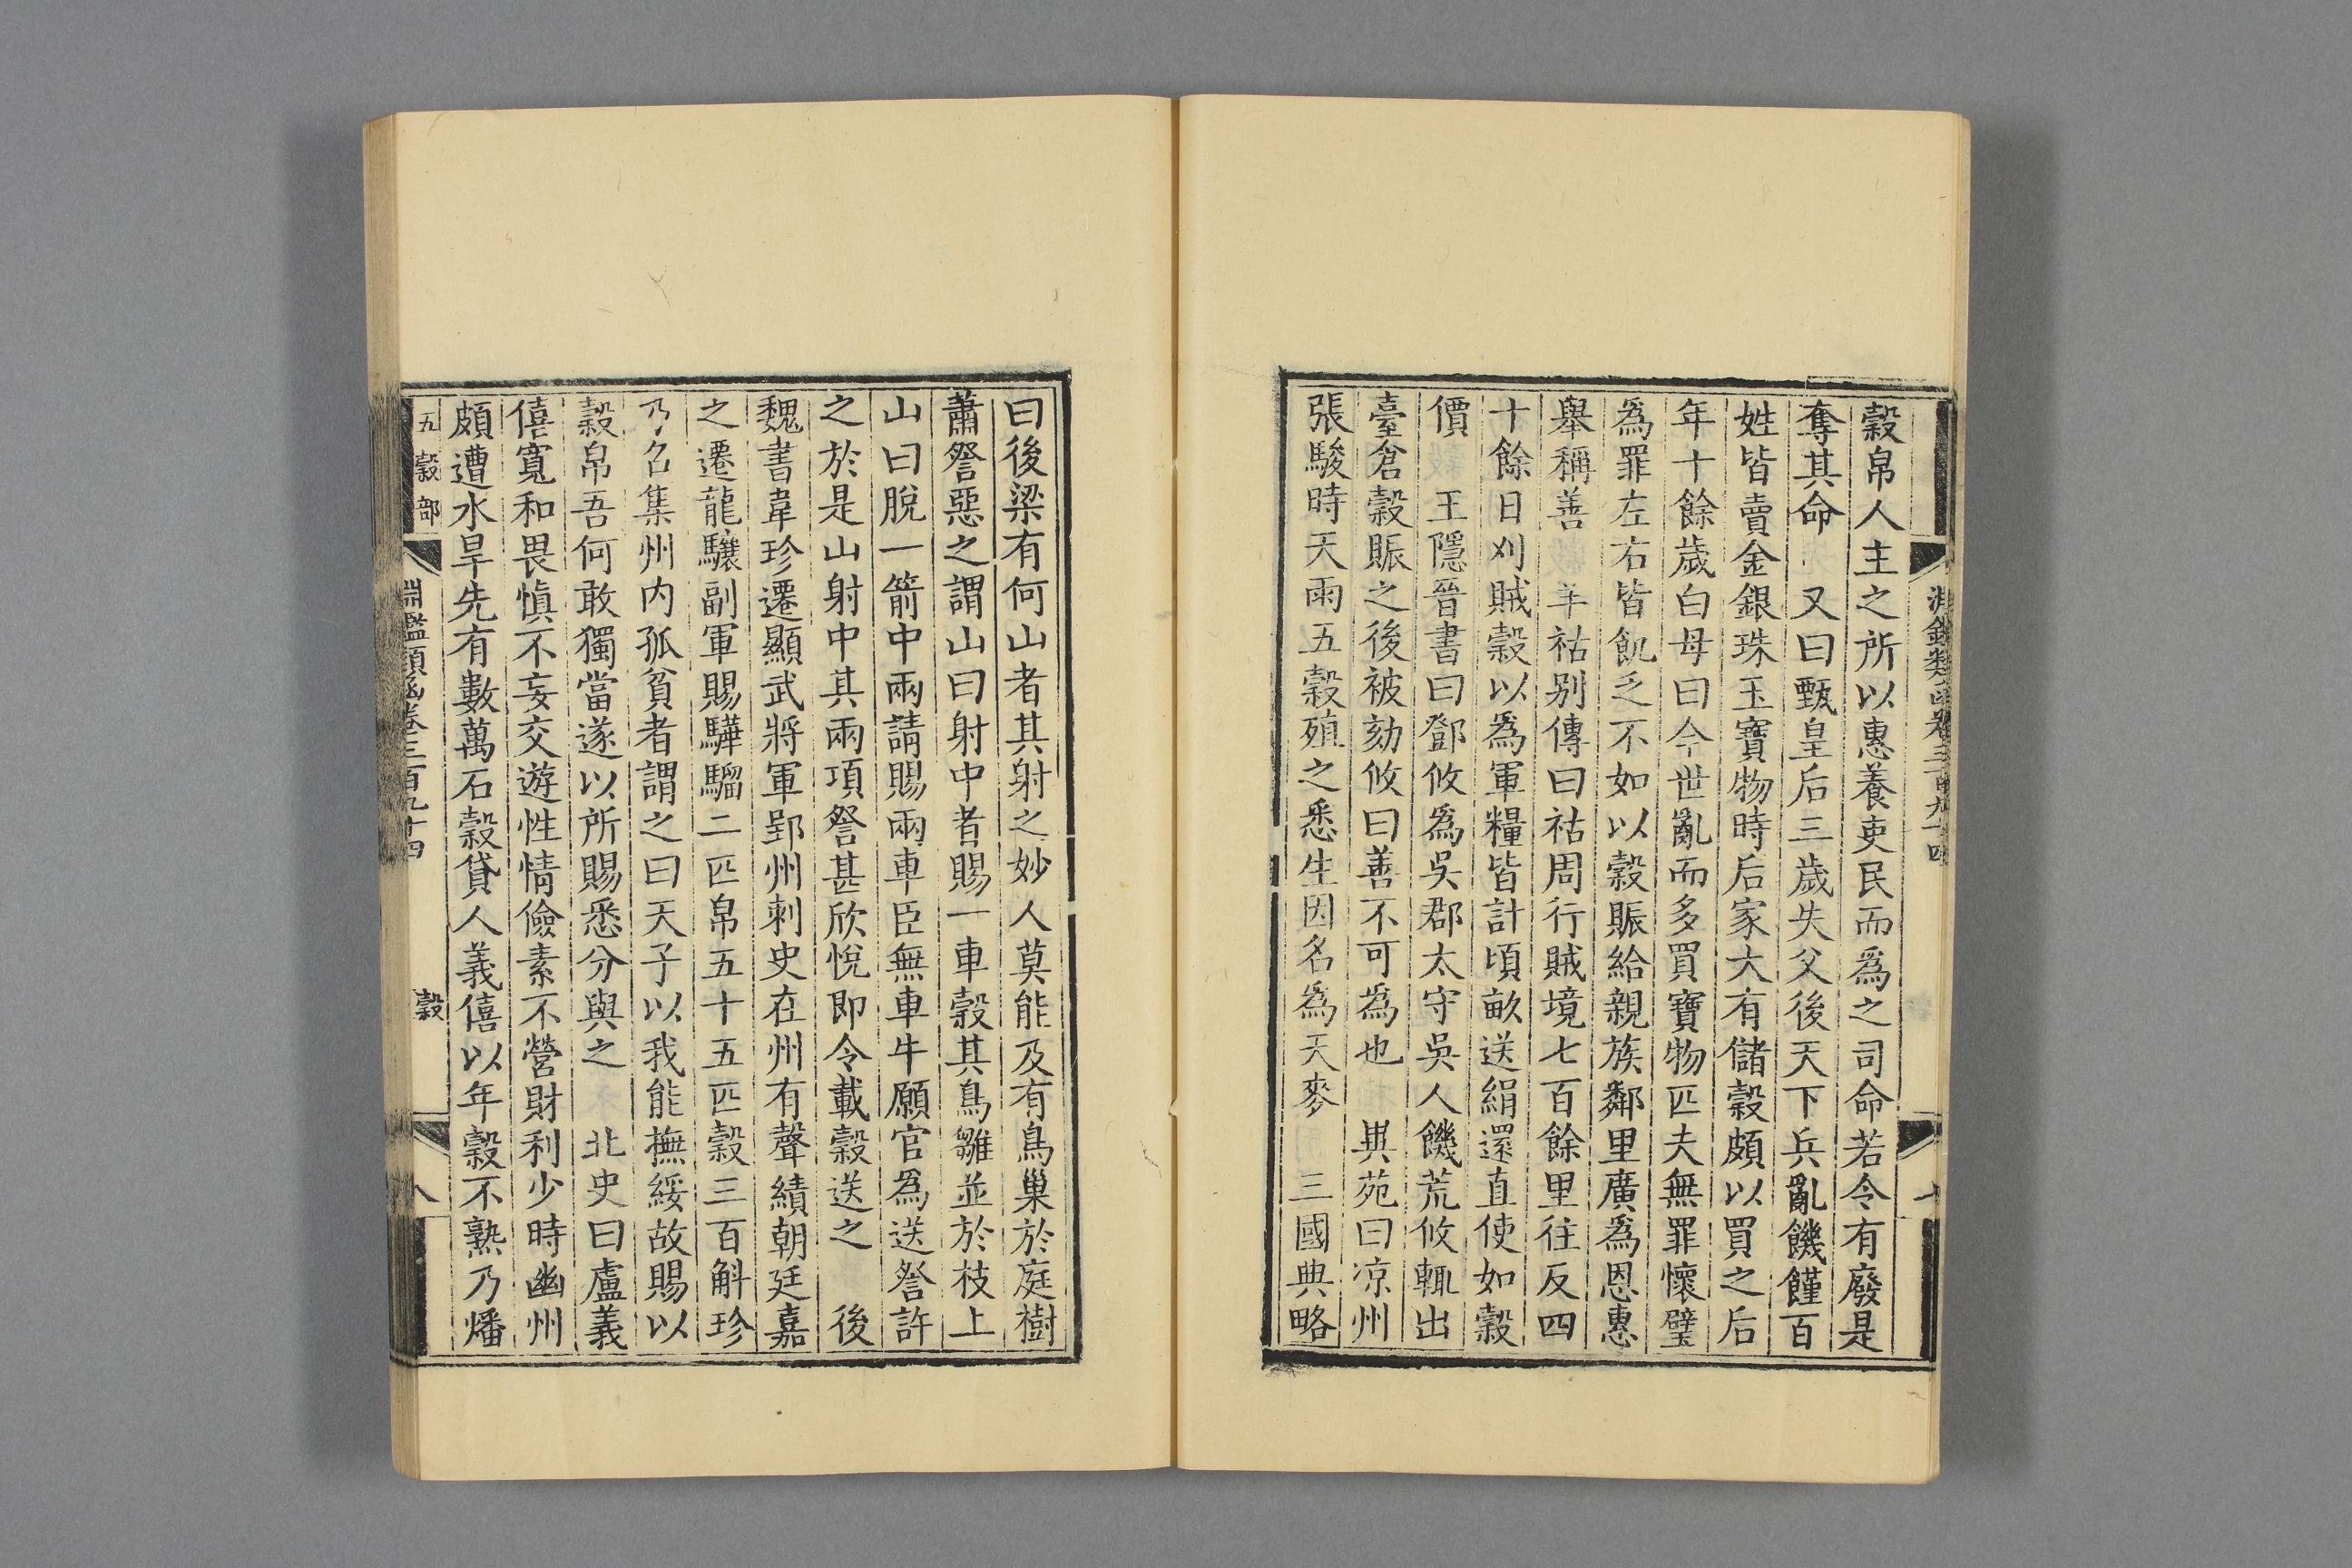 淵鑑類函卷三百九十四
穀帛人主之所以惠養吏民而爲之司命若令有廢是
奪其命 又曰甄皇后三歲失父後天下兵亂饑饉百
姓皆賣金銀珠玉寶物時后家大有儲穀頗以買之后
年十餘歲白母曰今世亂而多買寶物匹夫無罪懷璧
爲罪左右皆飢乏不如以穀賑給親族鄰里廣爲恩惠
舉稱善 羊祜别傳曰祜周行賊境七百餘里往反四
十餘日刈賊穀以爲軍糧皆計頃畝送絹還直使如穀
價 王隱晉書曰鄧攸爲吳郡太守吳人饑荒攸輒出
臺倉穀賑之後被劾攸曰善不可爲也 異苑曰凉州
張駿時天雨五穀殖之悉生因名爲天麥 三國典略
曰後梁有何山者其射之妙人莫能及有鳥巢於庭樹
蕭詧惡之謂山曰射中者賜一車穀其鳥雛並於枝上
山曰脫一箭中兩請賜兩車臣無車牛願官爲送詧許
之於是山射中其兩項詧甚欣悅即令載穀送之 後
魏書韋珍遷顯武將軍郢州刺史在州有聲績朝廷嘉
之遷龍驤副軍賜驊騮二匹帛五十五匹穀三百斛珍
乃召集州内孤貧者謂之曰天子以我能撫綏故賜以
穀帛吾何敢獨當遂以所賜悉分與之 北史曰盧義
僖寬和畏愼不妄交遊性情儉素不營財利少時幽州
頗遭水旱先有數萬石穀貸人義僖以年穀不熟乃燔
五穀部 淵鑑類函卷三百九十四 穀 八